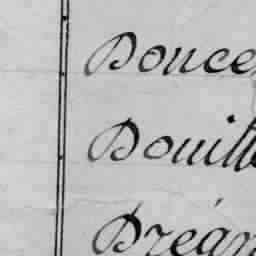 Douce
Douill
Dréan